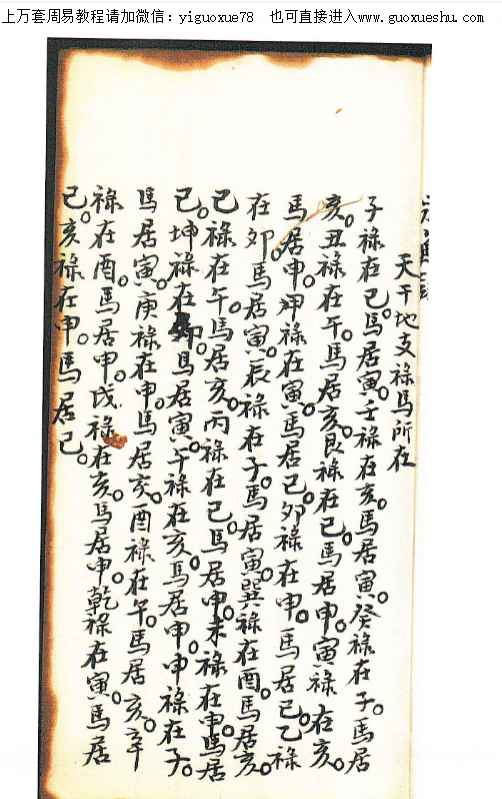 上万套周易教程请加微信：yiguoxue78　也可直接进入www.guoxueshu.com
天干地支祿馬所在
子祿在巳。馬居寅。壬祿在亥。馬居寅。癸祿在子。馬居
亥。丑祿在午。馬居亥。艮祿在巳。馬居申。寅祿在亥。
馬居申。甲祿在寅。馬居巳。卯祿在申。馬居巳。乙祿
在卯。馬居寅。辰祿在子。馬居寅。巽祿在酉。馬居亥。
巳祿在午。馬居亥。丙祿在巳。馬居申。未祿在申。馬居
巳。坤祿在卯。馬居寅。午祿在亥。馬居申。申祿在子。
馬居寅。庚祿在申。馬居亥。酉祿在午。馬居亥。辛
祿在酉。馬居申。戌祿在亥。馬居申。乾祿在寅。馬居
巳。亥祿在申。馬居巳。